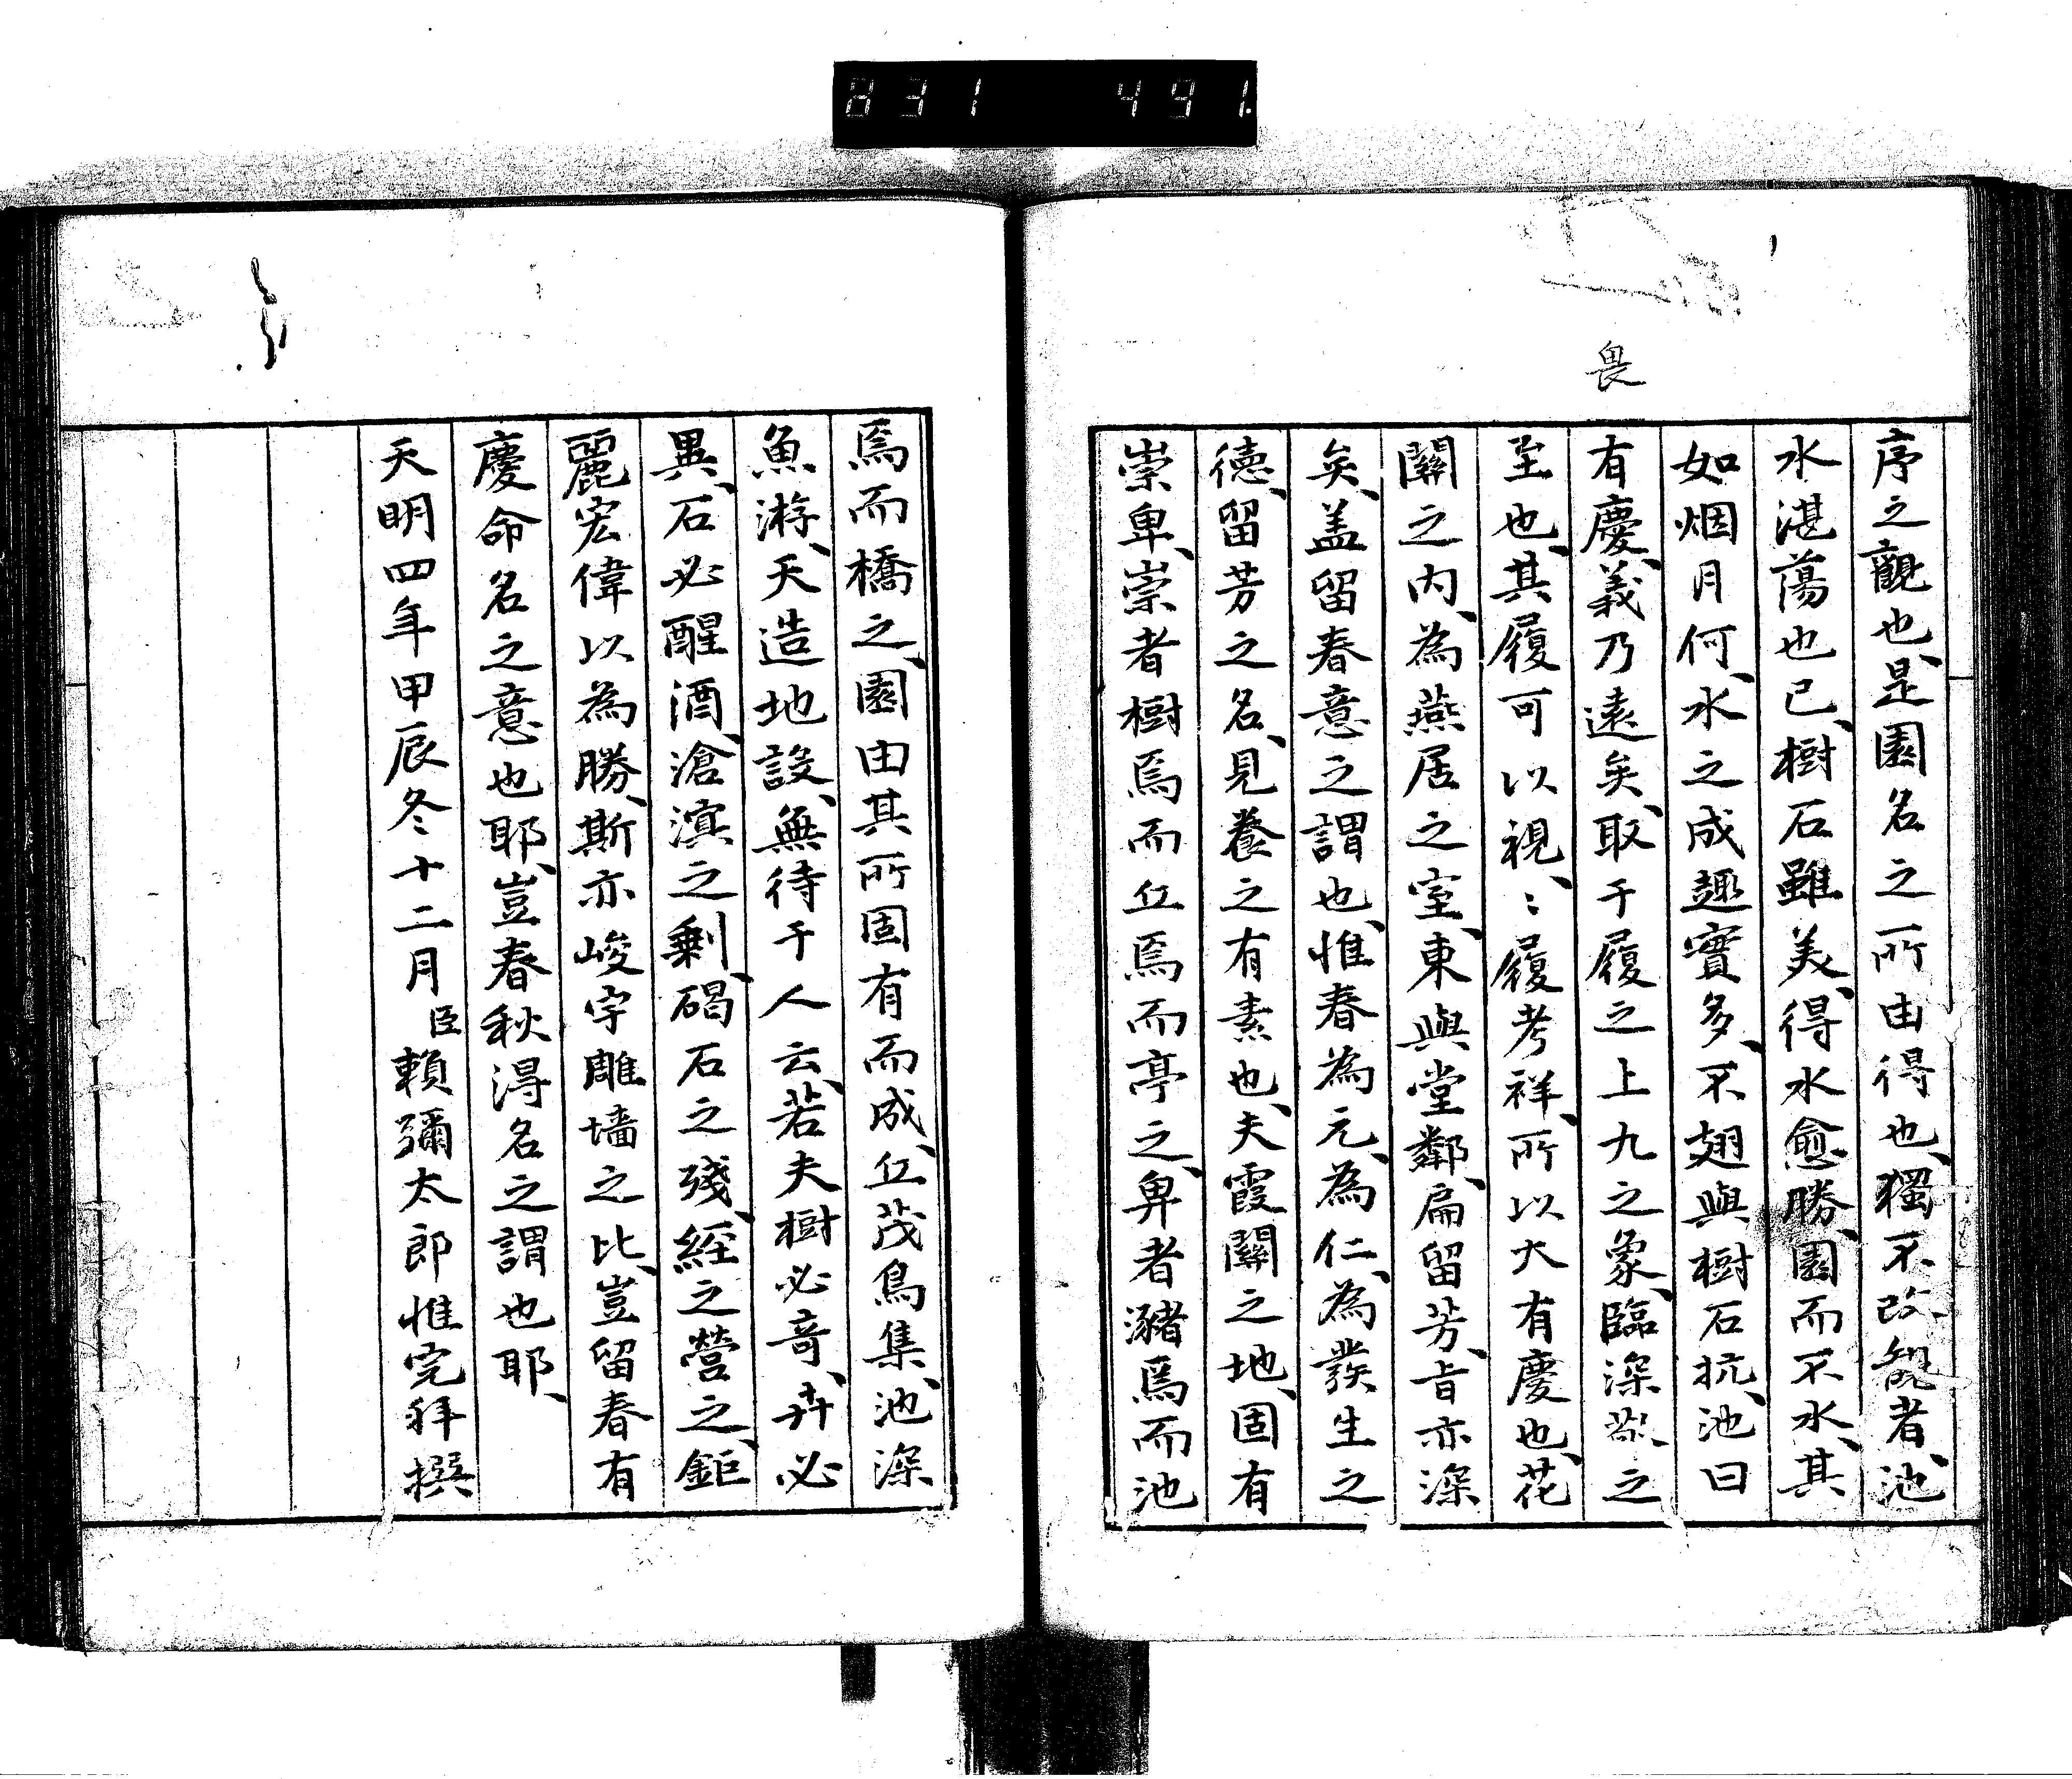 831 491.
畏
序之觀也、是園名之所由得也、獨不改觀者、池
水湛蕩也已、樹石雖美、得水愈勝、園而不水、其
如烟月何、水之成趣實多、不翅與樹石抗、池曰
有慶、義乃遠矣、取于履之上九之象、臨深之
至也、其履可以視、〻履考祥、所以大有慶也、花
關之内、為燕居之室、東與堂鄰、扁留芳、旨亦深
矣、盖留春意之謂也、惟春為元、為仁、為發生之
德、留芳之名、見養之有素也、夫霞關之地、固有
崇卑、崇者樹焉而丘焉而亭之、卑者瀦焉而池
焉而橋之、園由其所固有而成、丘茂鳥集、池深
魚游、天造地設、無待于人云、若夫樹必奇、卉必
異、石必醒酒、滄溟之剩、碣石之殘、經之營之、鉅
麗宏偉以為勝、斯亦峻宇雕墻之比、豈留春有
慶命名之意也耶、豈春秋淂名之謂也耶、
天明四年甲辰冬十二月臣賴彌太郎惟完拜撰